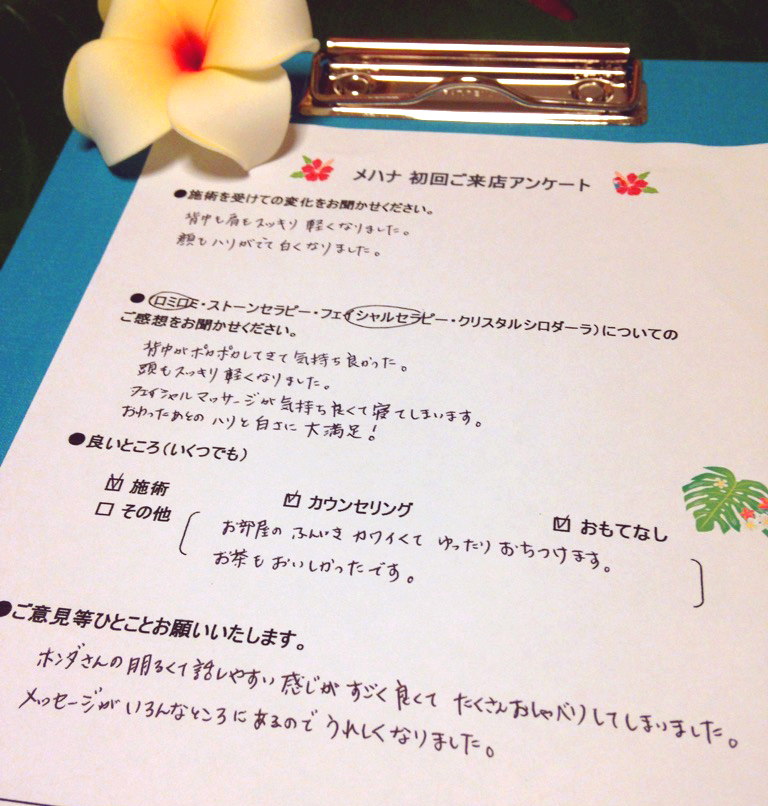 メハナ 初回ご来店アンケート
●施術を受けての変化をお聞かせください。
背中も肩もスッキリ軽くなりました。
顔もハリがでて白くなりました。
●ロミロミ・ストーンセラピー・フェイシャルセラピー・クリスタルシロダーラ）についての
ご感想をお聞かせください。
背中がポカポカしてきて気持ち良かった。
頭もスッキリ軽くなりました。
フェイシャルマッサージが気持ち良くて寝てしまいます。
おわったあとのハリと白さに大満足！
●良いところ（いくつでも）
☑ 施術 ☑ カウンセリング ☑ おもてなし
□ その他
お部屋のふんいきカワイくてゆったりおちつけます。
お茶もおいしかったです。
●ご意見等ひとことお願いいたします。
ホンダさんの明るくて話しやすい感じがすごく良くてたくさんおしゃべりしてしまいました。
メッセージがいろんなところにあるのでうれしくなりました。